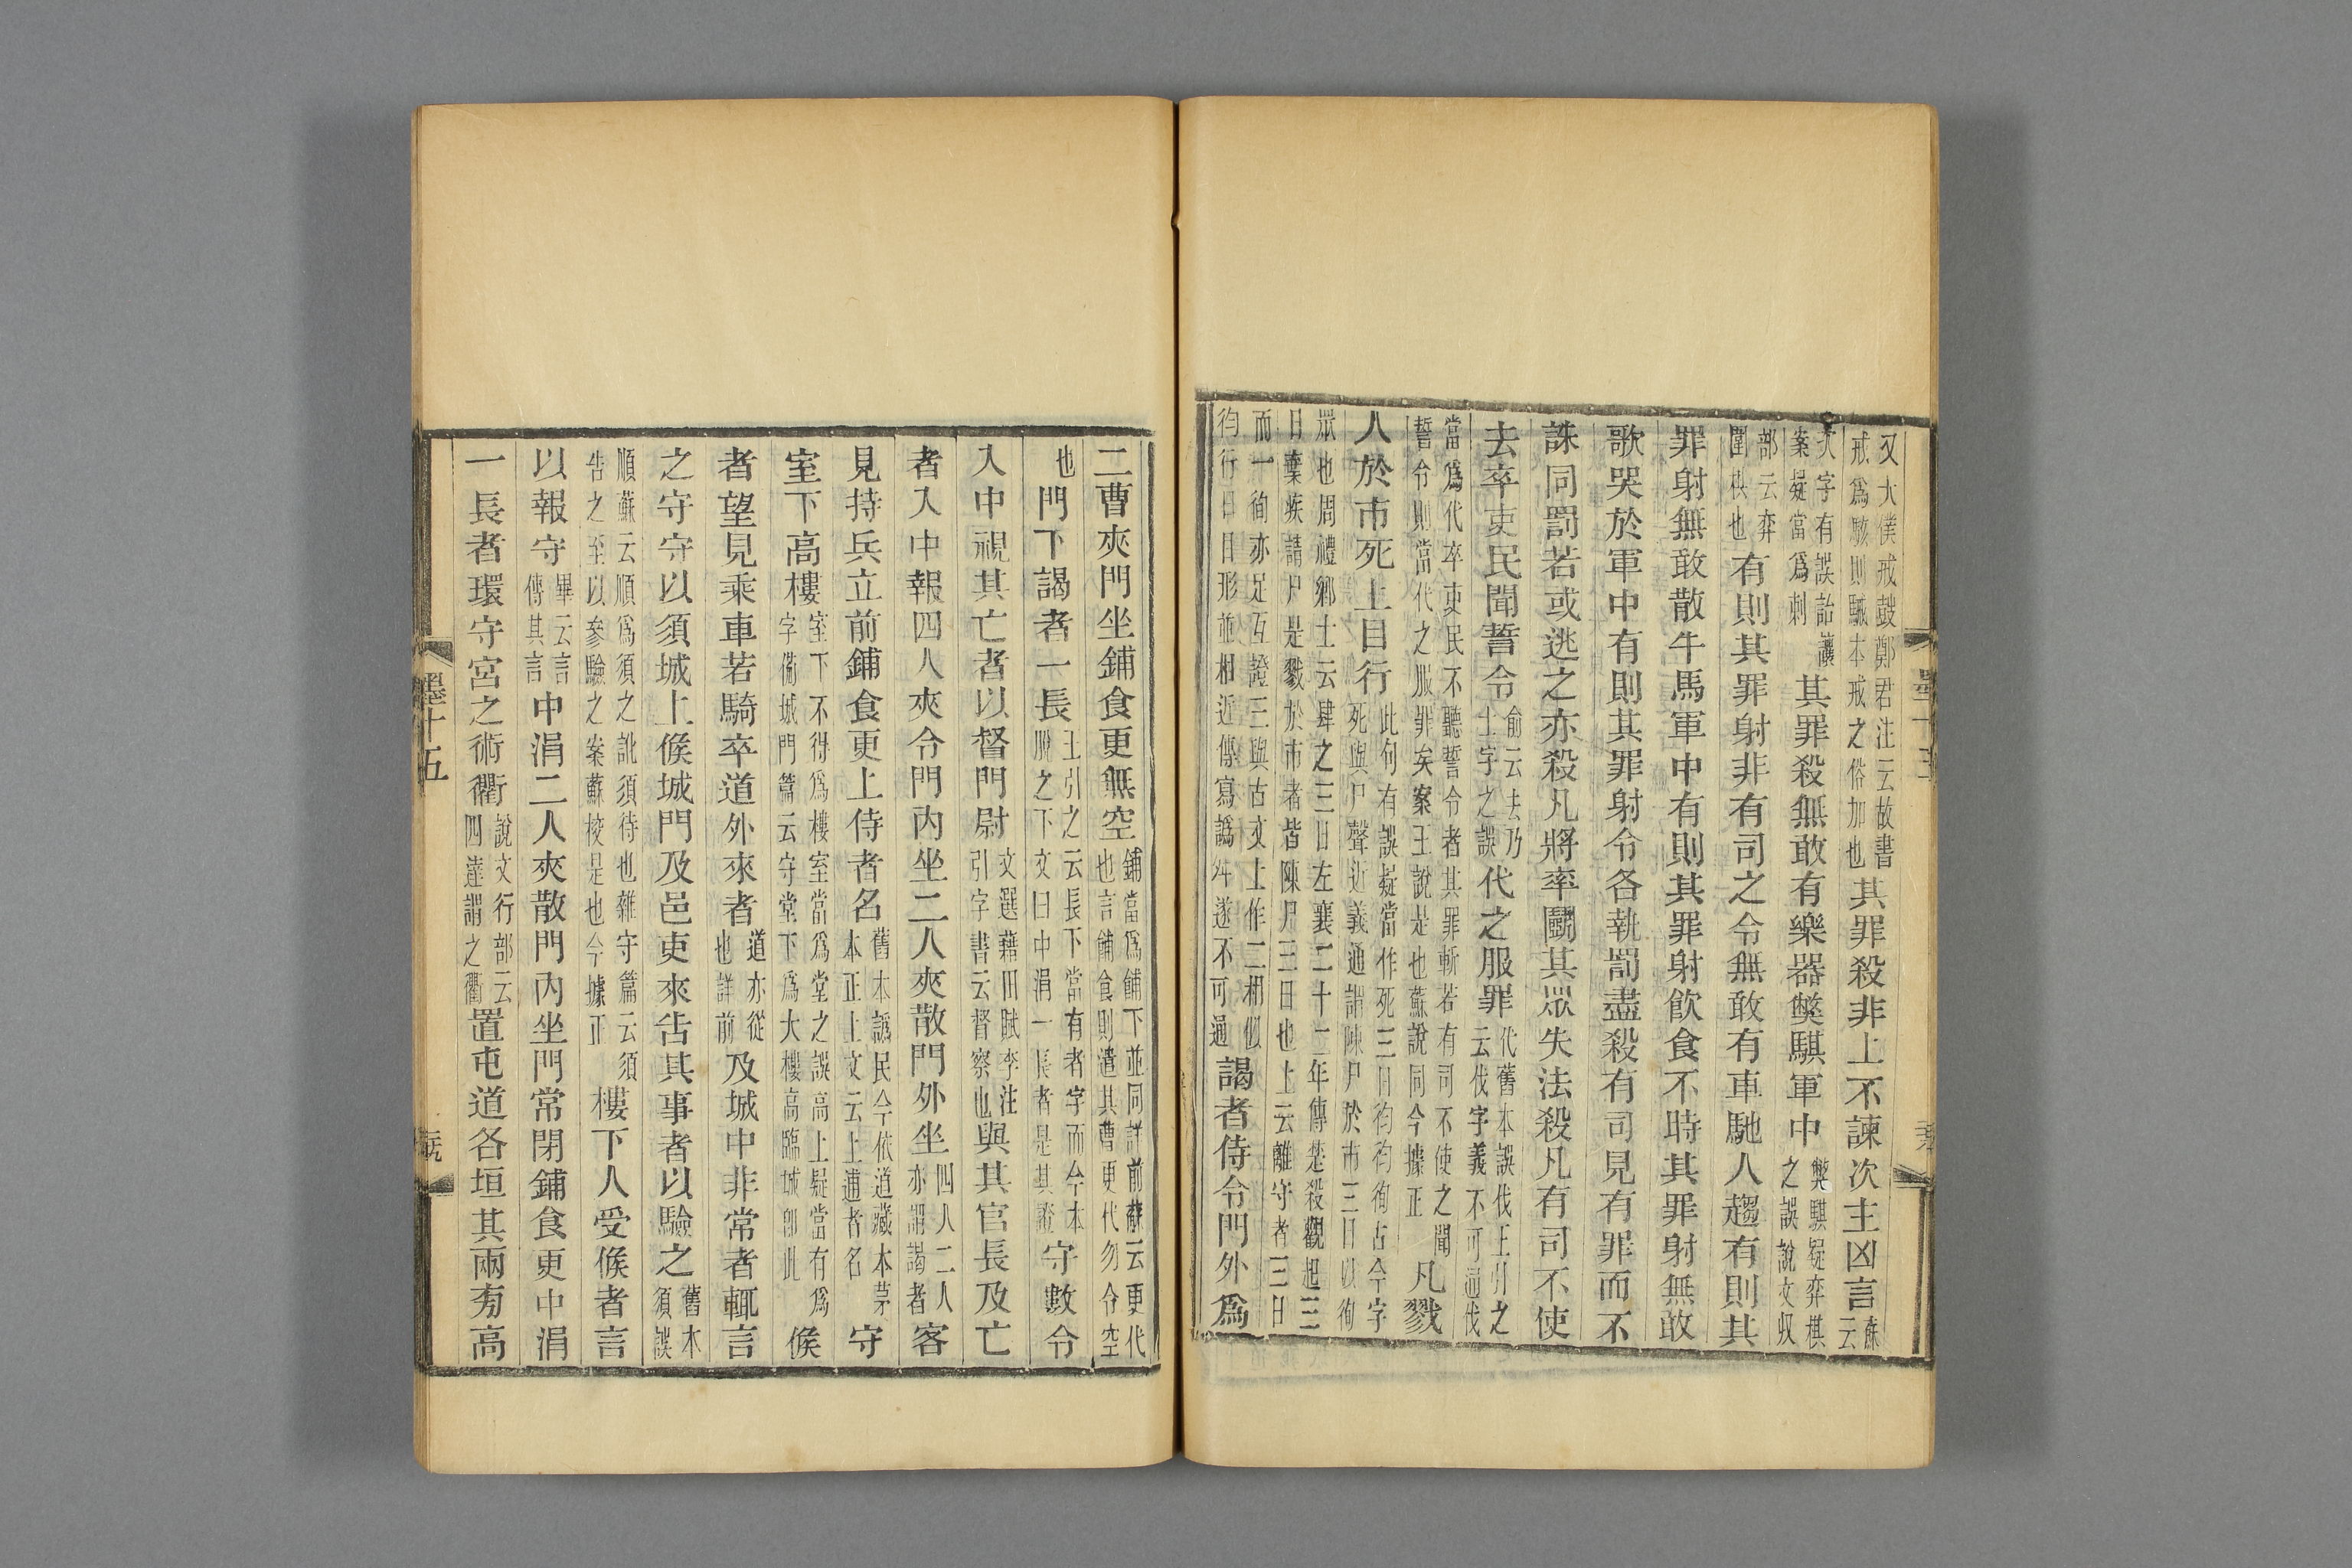 又大僕戒鼓鄭君注云故書
戒爲駭則駴本戒之俗加也
其罪殺非上不諫次主凶言
蘇云
大字有誤詒讓
案疑當爲刺
其罪殺無敢有樂器獘騏軍中
獘騏疑弈棋
之誤說文収
部云弈
圍棋也
有則其罪射非有司之令無敢有車馳人趨有則其
罪射無敢散牛馬軍中有則其罪射飲食不時其罪射無敢
歌哭於軍中有則其罪射令各執罰盡殺有司見有罪而不
誅同罰若或逃之亦殺凡將率鬬其眾失法殺凡有司不使
去卒吏民聞誓令
俞云去乃
士字之誤
代之服罪
代舊本誤伐王引之
云伐字義不可通伐
當爲代卒吏民不聽誓令者其罪斬若有司不使之聞
誓令則當代之服罪矣案王說是也蘇說同今據正
凡戮
人於市死上目行
此句有誤疑當作死三日徇徇徇古今字
死與尸聲近義通謂陳尸於市三日以徇
眾也周禮鄉士云肆之三日左襄二十二年傳楚殺觀起三
日棄疾請尸是戮於市者皆陳尸三日也上云離守者三日
而一徇亦足互證三與古文上作二相似
徇行日目形並相近傳寫譌舛遂不可通
謁者侍令門外爲
二曹夾門坐鋪食更無空
鋪當爲餔下並同詳前蘇云更代
也言餔食則遣其曹更代勿令空
也
門下謁者一長
王引之云長下當有者字而今本
脫之下文曰中涓一長者是其證
守數令
入中視其亡者以督門尉
文選藉田賦李注
引字書云督察也
與其官長及亡
者入中報四人夾令門內坐二人夾散門外坐
四人二人
亦謂謁者
客
見持兵立前鋪食更上侍者名
舊本譌民今依道藏本茅
本正上文云上逋者名
守
室下高樓
室下不得爲樓室當爲堂之誤高上疑當有爲
字備城門篇云守堂下爲大樓高臨城卽此
候
者望見乘車若騎卒道外來者
道亦從
也詳前
及城中非常者輒言
之守守以須城上候城門及邑吏來告其事者以驗之
舊本
須誤
順蘇云順爲須之訛須待也雜守篇云須
告之至以參驗之案蘇校是也今據正
樓下人受候者言
以報守
畢云言
傳其言
中涓二人夾散門內坐門常閉鋪食更中涓
一長者環守宮之術衢
說文行部云
四達謂之衢
置屯道各垣其兩旁高
墨十五